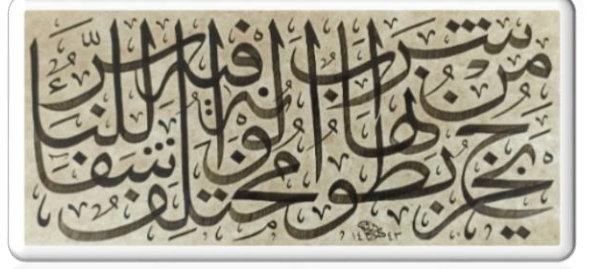 يَخْرُجُ مِنْ بُطُونِهَا شَرَابٌ مُخْتَلِفٌ أَلْوَانُهُ فِيهِ شِفَاءٌ لِلنَّاسِ
١٤٤٣